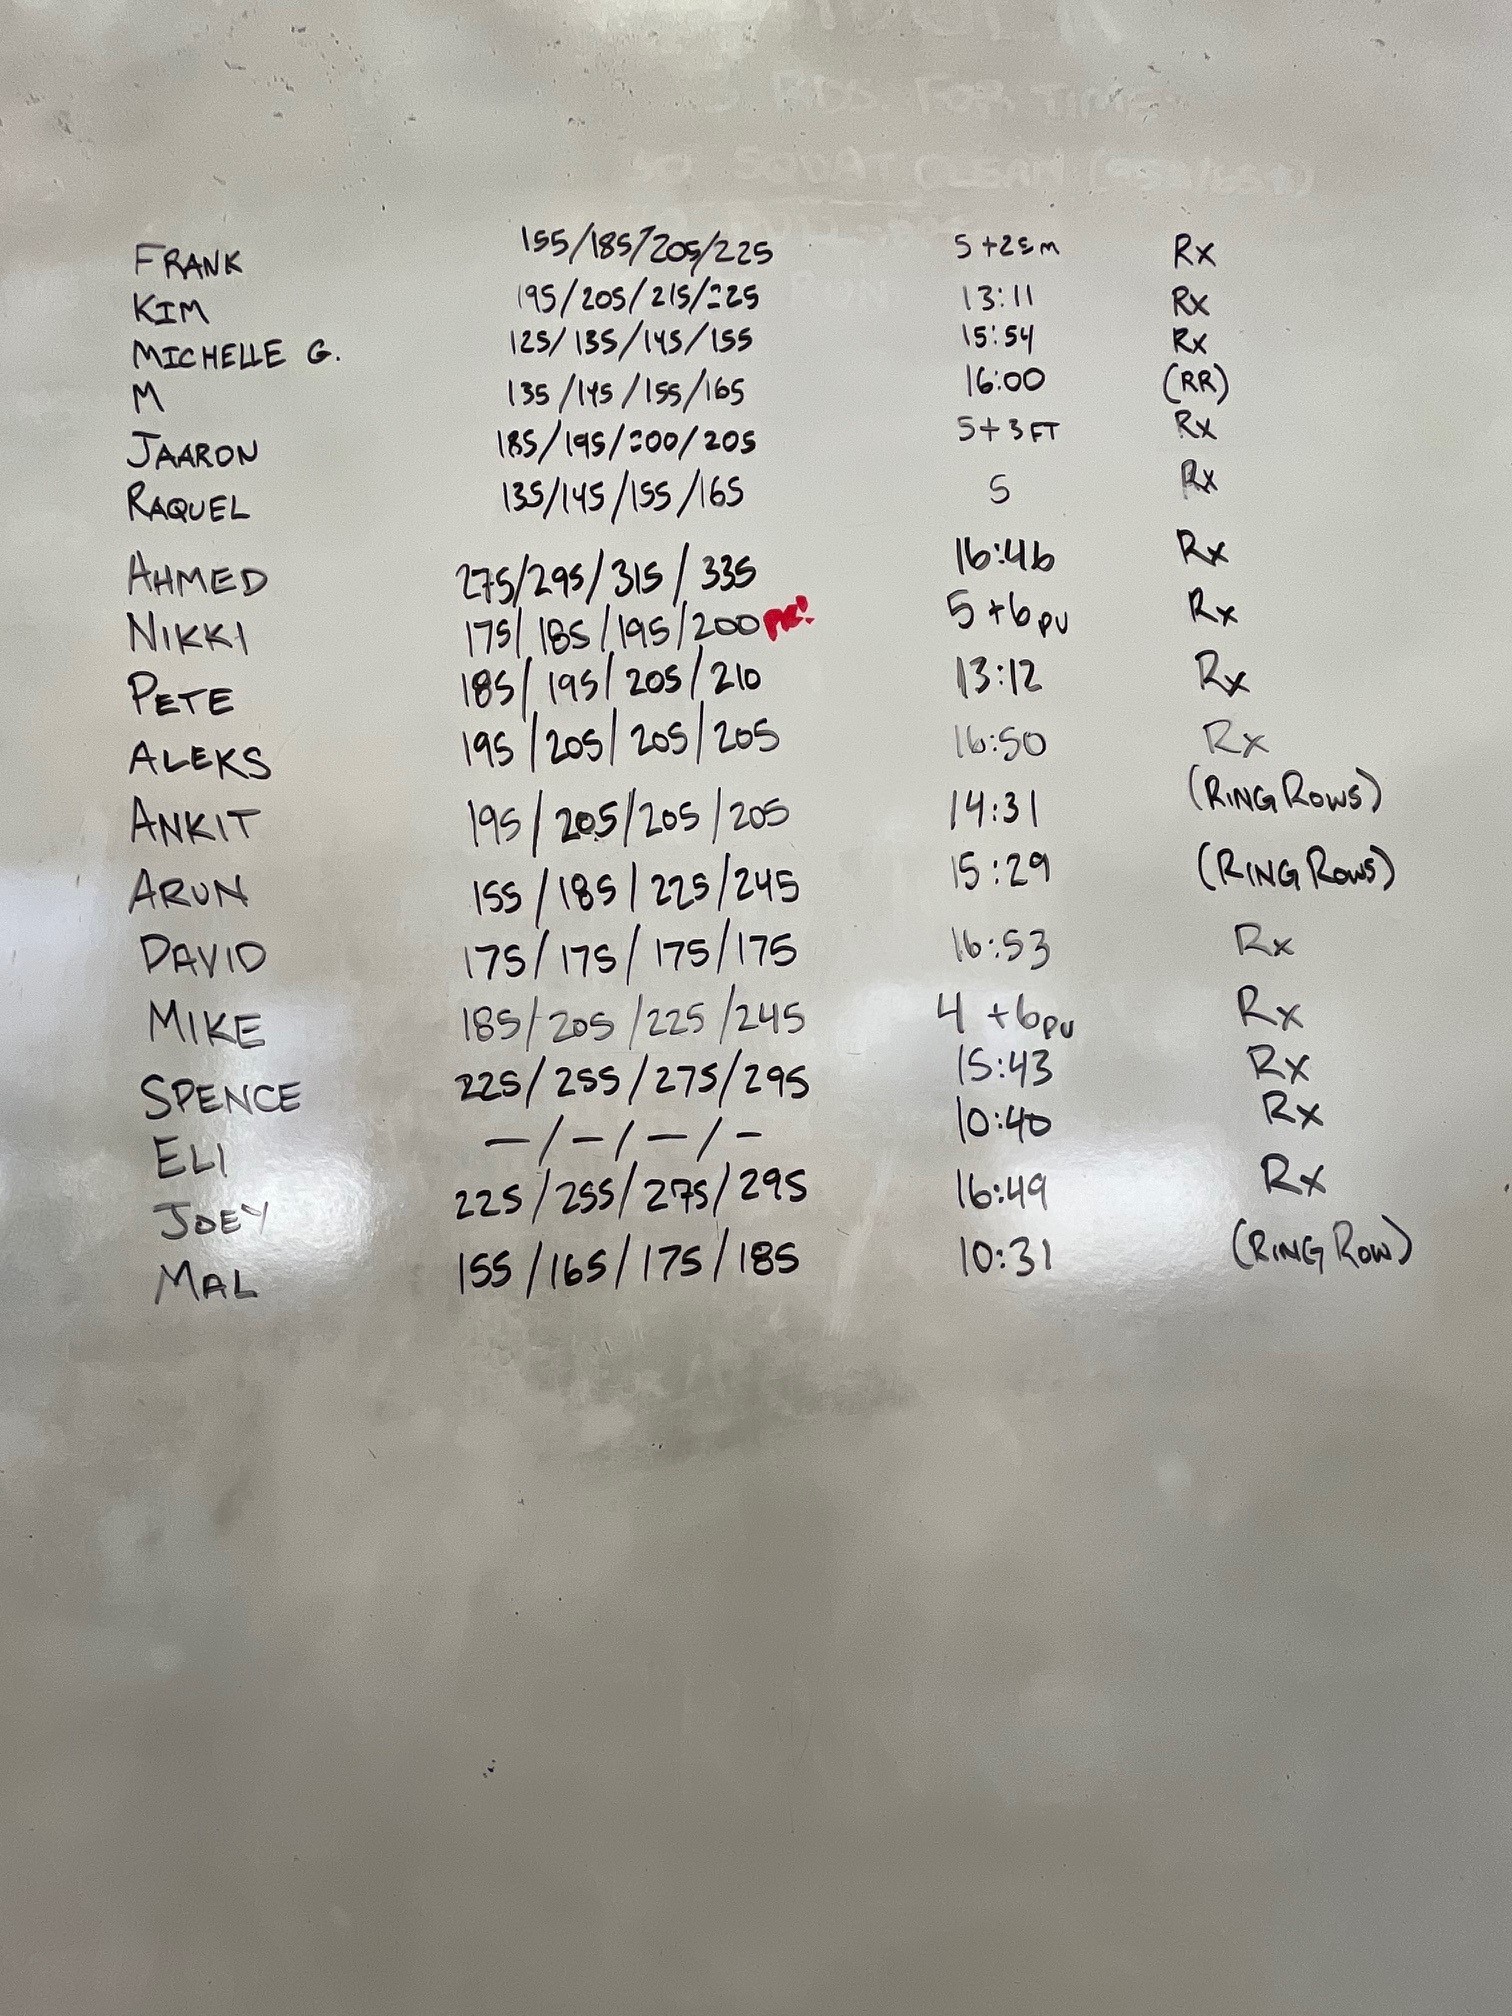 RDS. FOR TIME
SQUAT CLEAN
FRANK 155/185/205/225 5+25m Rx
KIM 195/205/215/225 13:11 Rx
MICHELLE G. 125/135/145/155 15:54 Rx
M 135/145/155/165 16:00 (RR)
JAARON 185/195/200/205 5+3FT Rx
RAQUEL 135/145/155/165 5 Rx
AHMED 275/295/315/335 16:46 Rx
NIKKI 175/185/195/200 PR! 5+6PU Rx
PETE 185/195/205/210 13:12 Rx
ALEKS 195/205/205/205 16:50 Rx
ANKIT 195/205/205/205 14:31 (RING ROWS)
ARUN 155/185/225/245 15:29 (RING ROWS)
DAVID 175/175/175/175 16:53 Rx
MIKE 185/205/225/245 4+6PU Rx
SPENCE 225/255/275/295 15:43 Rx
ELI —/—/—/— 10:40 Rx
JOEY 225/255/275/295 16:49 Rx
MAL 155/165/175/185 10:31 (RING ROW)